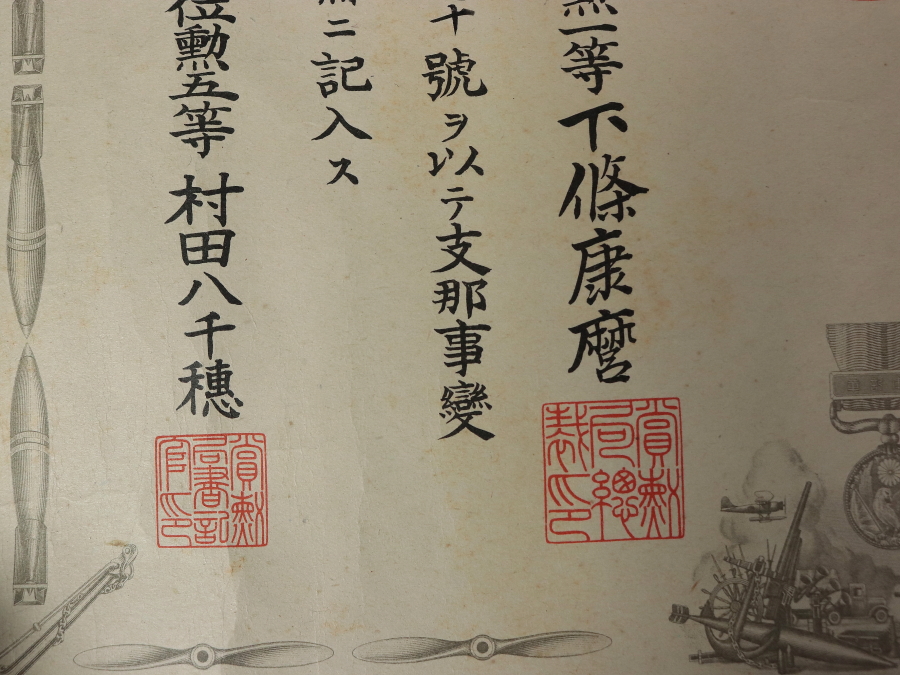 勲一等下條康麿
賞勲局總裁印
十號ヲ以テ支那事變
ニ記入ス
位勲五等村田八千穗
賞勲局書記官印